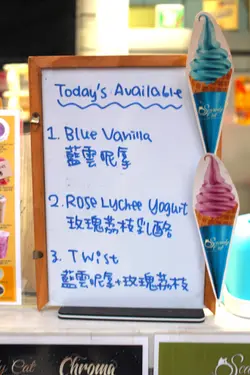 Today's Available
1. Blue Vanilla
藍雲呢拿
2. Rose Lychee Yogurt
玫瑰荔枝乳酪
3. Twist
藍雲呢拿+玫瑰荔枝
Cat
Chroma